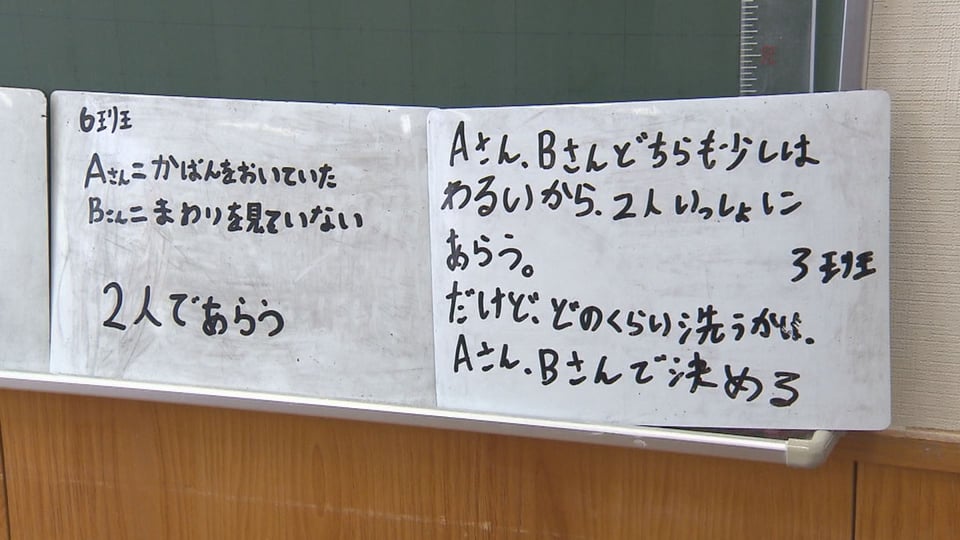 6班
Aさん=かばんをおいていた
Bさん=まわりを見ていない
2人であらう
Aさん、Bさんどちらも少しは
わるいから、2人いっしょに
あらう。
3班
だけど、どのくらい洗うかは、
Aさん、Bさんで決める